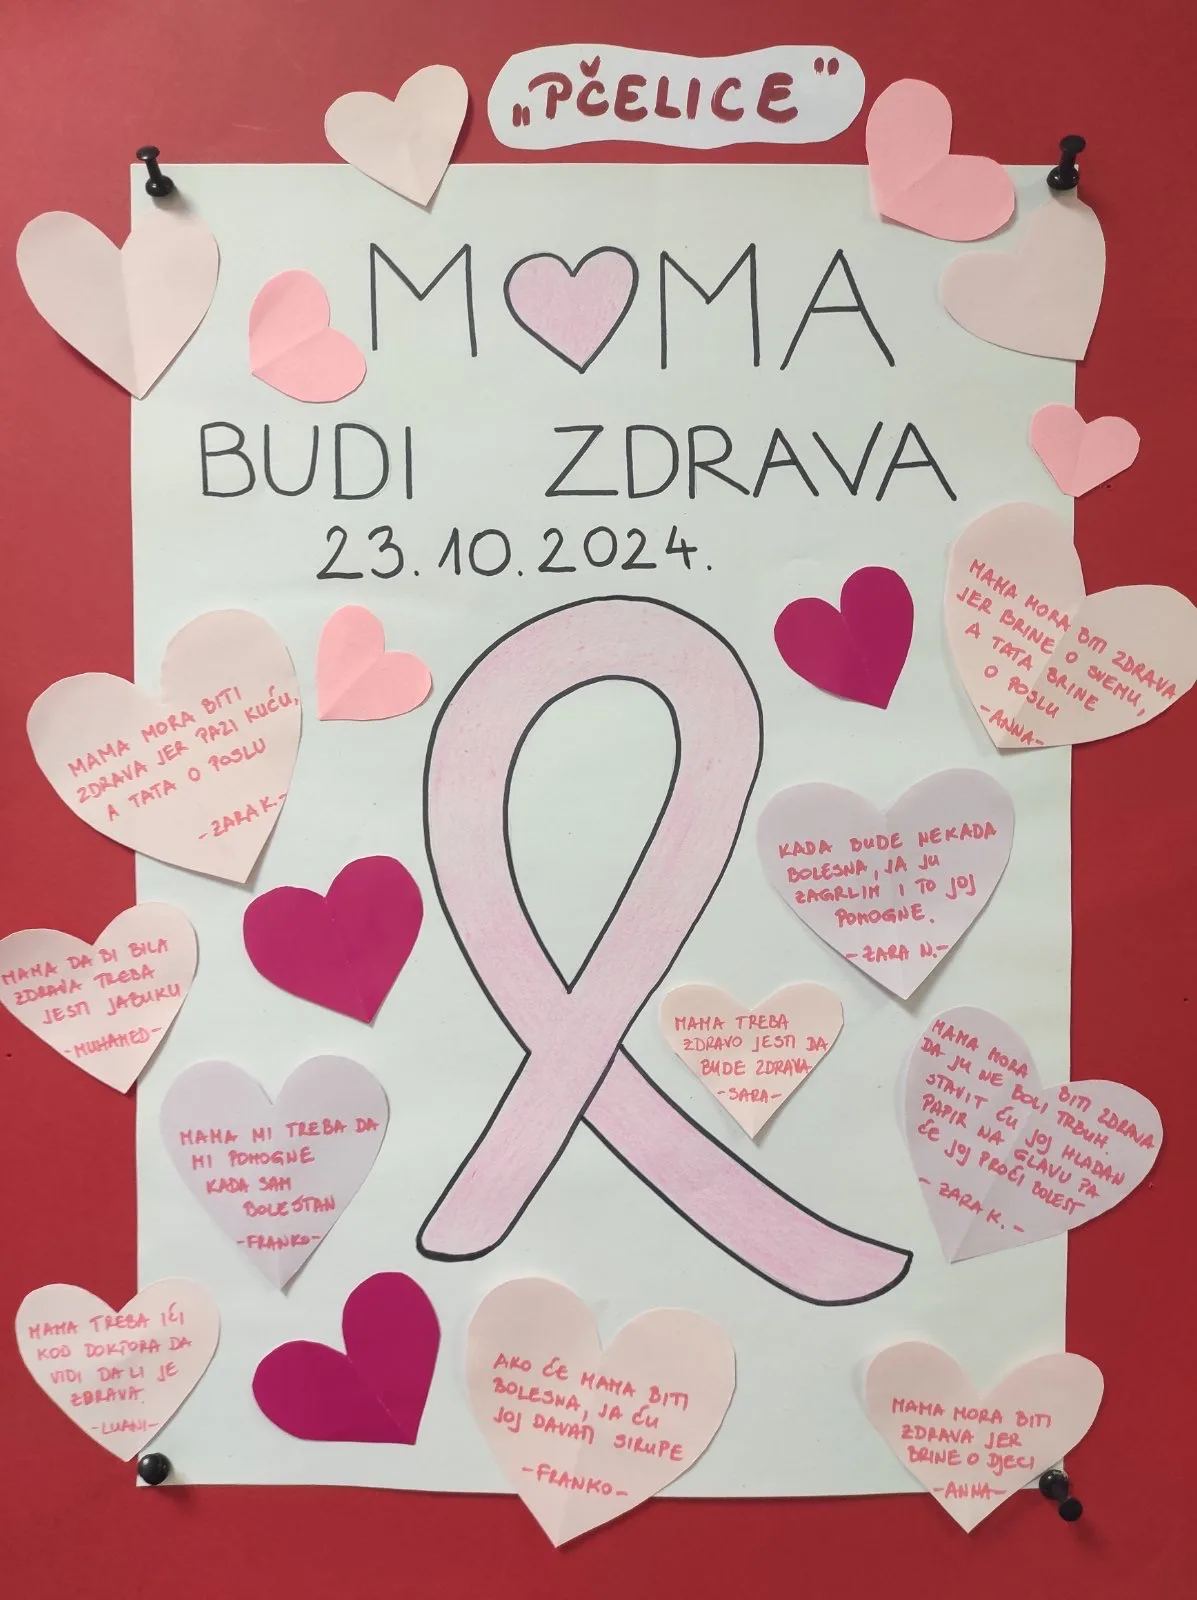 „PČELICE"
M♥MA
BUDI ZDRAVA
23.10.2024.
MAMA MORA BITI ZDRAVA
JER BRINE O SVEMU,
A TATA BRINE
O POSLU
-ANNA-
MAMA MORA BITI
ZDRAVA JER PAZI KUĆU,
A TATA O POSLU
-ZARA K.-
KADA BUDE NEKADA
BOLESNA, JA JU
ZAGRLIM I TO JOJ
POMOGNE.
-ZARA N.-
MAMA DA BI BILA
ZDRAVA TREBA
JESTI JABUKU
-MUHAMED-
MAMA TREBA
ZDRAVO JESTI DA
BUDE ZDRAVA
-SARA-
MAMA MORA BITI ZDRAVA
DA JU NE BOLI TRBUH.
STAVIT ĆU JOJ HLADAN
PAPIR NA GLAVU PA
ĆE JOJ PROĆI BOLEST
-ZARA K.-
MAMA MI TREBA DA
MI POMOGNE
KADA SAM
BOLESTAN
-FRANKO-
MAMA TREBA IĆI
KOD DOKTORA DA
VIDI DA LI JE
ZDRAVA.
-LUANI-
AKO ĆE MAMA BITI
BOLESNA, JA ĆU
JOJ DAVATI SIRUPE
-FRANKO-
MAMA MORA BITI
ZDRAVA JER
BRINE O DJECI
-ANNA-